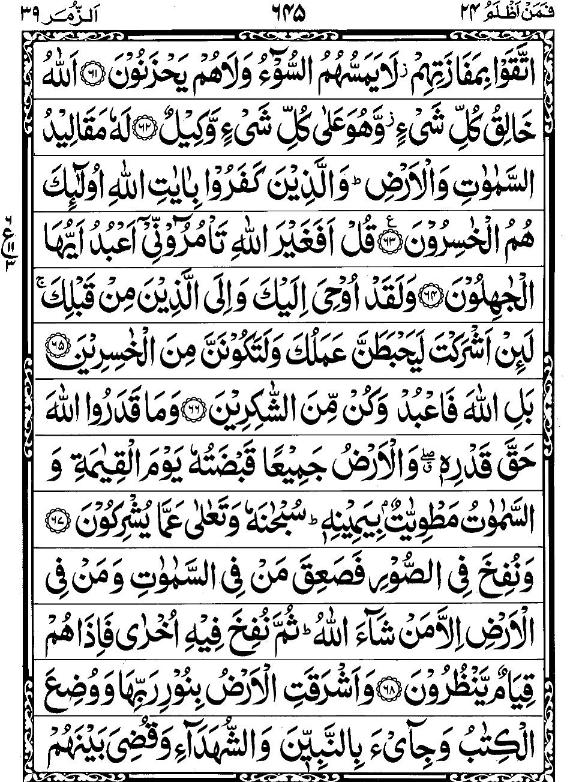 فَمَنْ اَظْلَمُ ٢٤ ٦٤٥ اَلزُّمَر ٣٩
اتَّقَوْا بِمَفَازَتِهِمْ ز لَا يَمَسُّهُمُ السُّوْٓءُ وَلَا هُمْ يَحْزَنُوْنَ ﴿٦١﴾ اَللّٰهُ
خَالِقُ كُلِّ شَىْءٍ ز وَّهُوَ عَلٰى كُلِّ شَىْءٍ وَّكِيْلٌ ﴿٦٢﴾ لَهٗ مَقَالِيْدُ
السَّمٰوٰتِ وَالْاَرْضِ ؕ وَالَّذِيْنَ كَفَرُوْا بِاٰيٰتِ اللّٰهِ اُولٰٓئِكَ
هُمُ الْخٰسِرُوْنَ ﴿٦٣﴾ ع قُلْ اَفَغَيْرَ اللّٰهِ تَاْمُرُوْٓنِّىْٓ اَعْبُدُ اَيُّهَا
الْجٰهِلُوْنَ ﴿٦٤﴾ وَلَقَدْ اُوْحِىَ اِلَيْكَ وَاِلَى الَّذِيْنَ مِنْ قَبْلِكَ ۚ
لَئِنْ اَشْرَكْتَ لَيَحْبَطَنَّ عَمَلُكَ وَلَتَكُوْنَنَّ مِنَ الْخٰسِرِيْنَ ﴿٦٥﴾
بَلِ اللّٰهَ فَاعْبُدْ وَكُنْ مِّنَ الشّٰكِرِيْنَ ﴿٦٦﴾ وَمَا قَدَرُوا اللّٰهَ
حَقَّ قَدْرِهٖ ۖ وَالْاَرْضُ جَمِيْعًا قَبْضَتُهٗ يَوْمَ الْقِيٰمَةِ وَ
السَّمٰوٰتُ مَطْوِيّٰتٌۢ بِيَمِيْنِهٖ ؕ سُبْحٰنَهٗ وَتَعٰلٰى عَمَّا يُشْرِكُوْنَ ﴿٦٧﴾
وَنُفِخَ فِى الصُّوْرِ فَصَعِقَ مَنْ فِى السَّمٰوٰتِ وَمَنْ فِى
الْاَرْضِ اِلَّا مَنْ شَآءَ اللّٰهُ ؕ ثُمَّ نُفِخَ فِيْهِ اُخْرٰى فَاِذَا هُمْ
قِيَامٌ يَّنْظُرُوْنَ ﴿٦٨﴾ وَاَشْرَقَتِ الْاَرْضُ بِنُوْرِ رَبِّهَا وَوُضِعَ
الْكِتٰبُ وَجِاىْٓءَ بِالنَّبِيّٖنَ وَالشُّهَدَآءِ وَقُضِىَ بَيْنَهُمْ